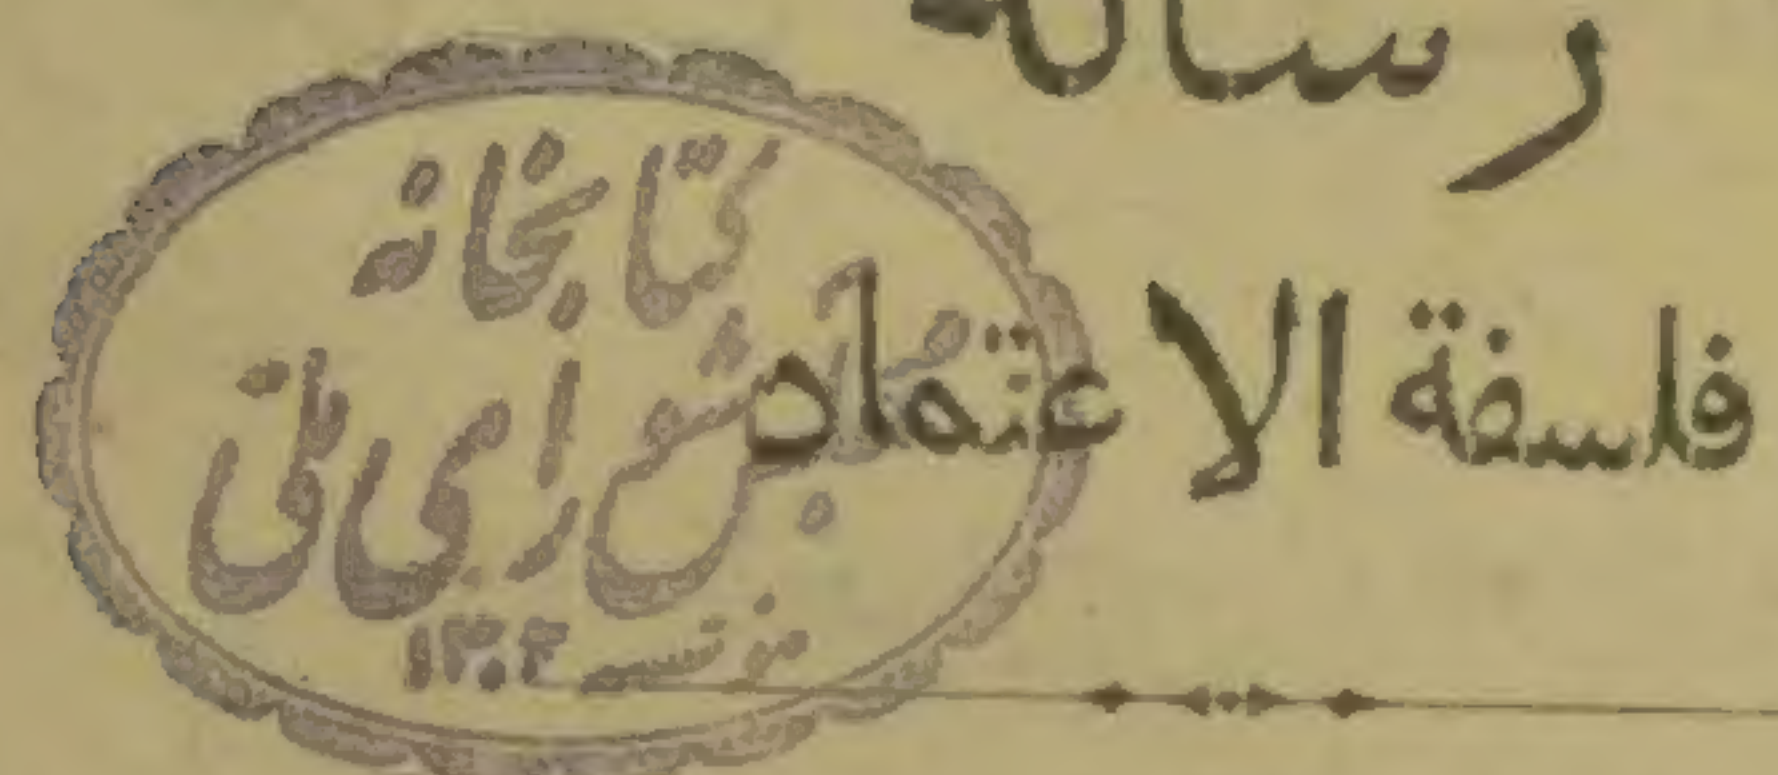 رسالة
فلسفة الاعتماد
کتابخانه
مجلس شورای ملی